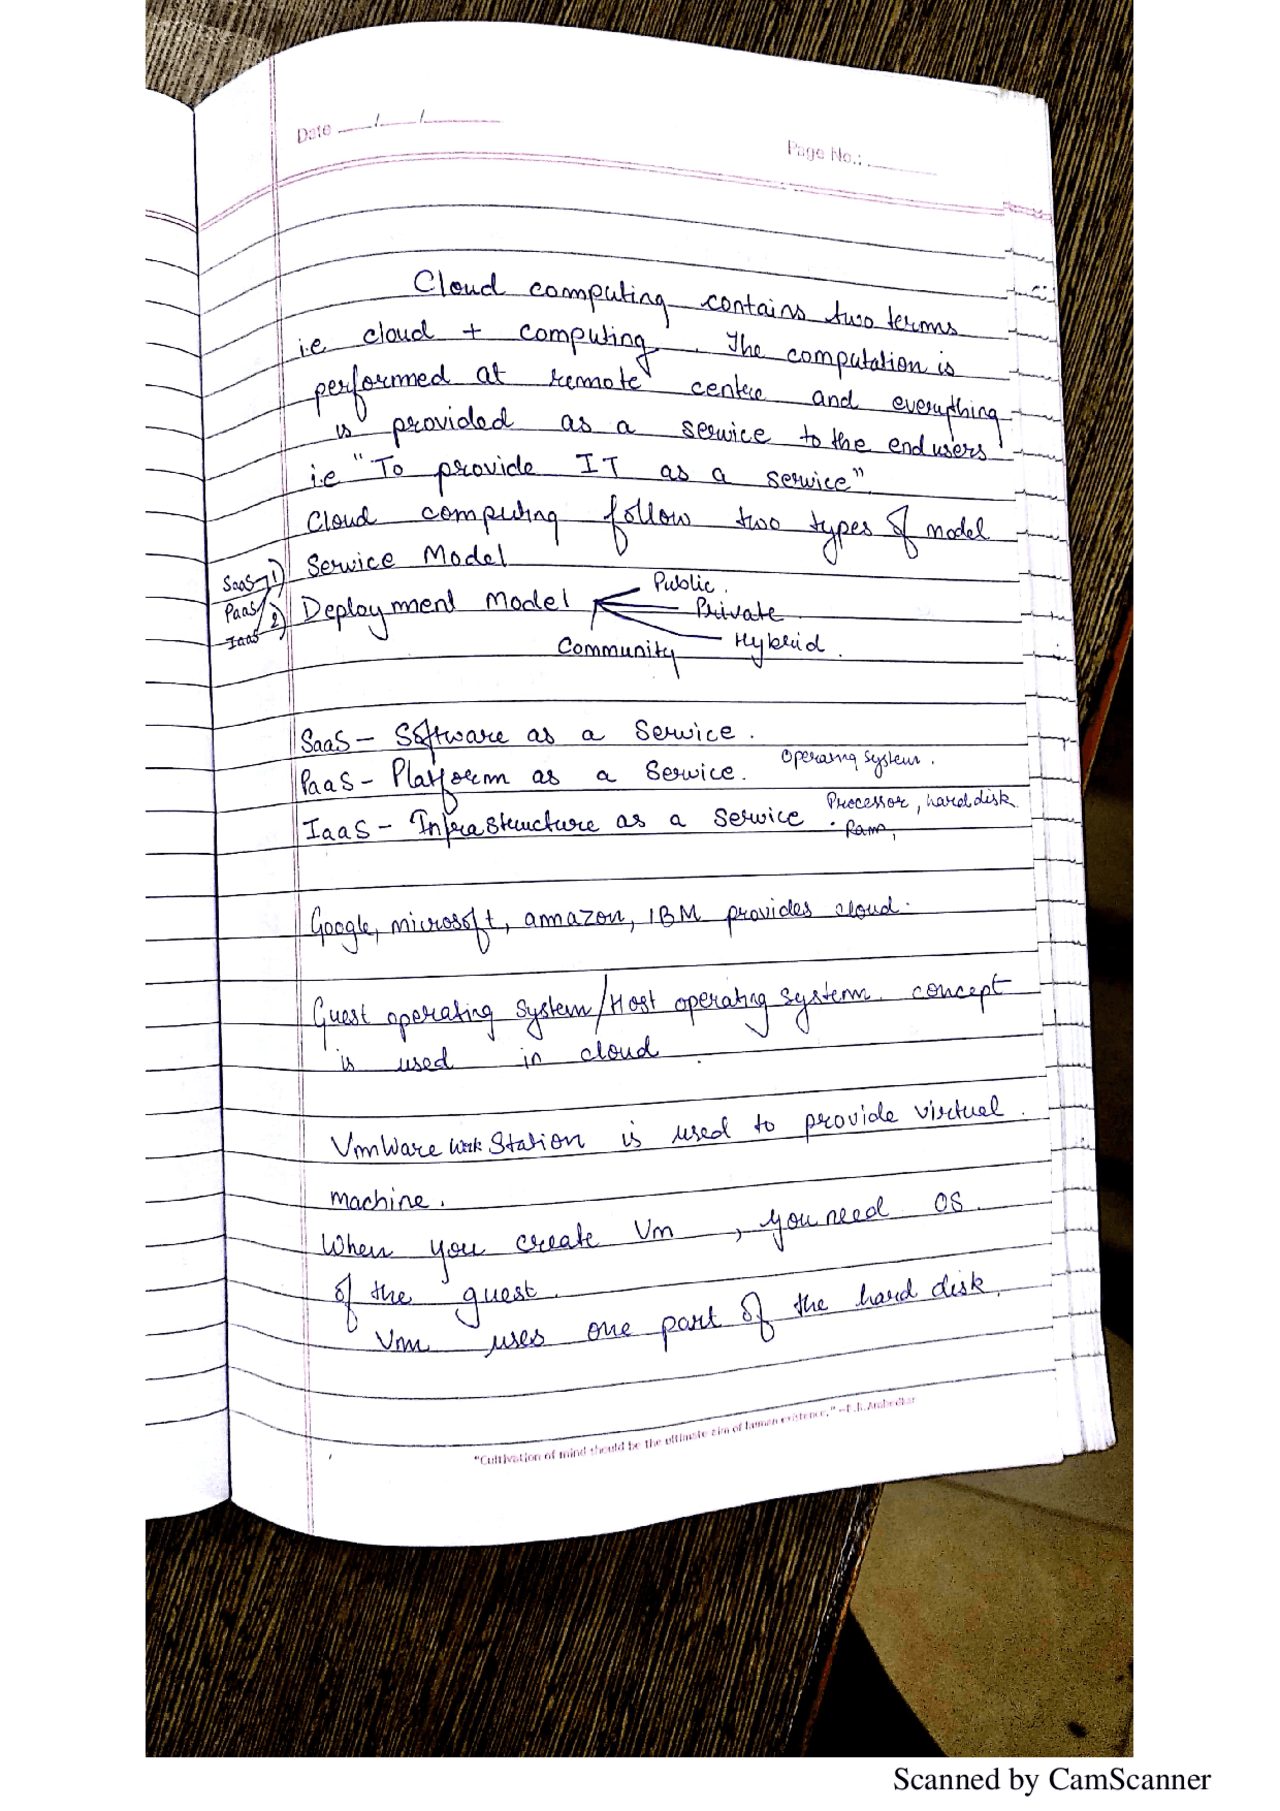 Date ___/___/______
Page No.: ______
Cloud computing contains two terms
i.e cloud + computing. The computation is
performed at remote centre and everything
is provided as a service to the end users
i.e "To provide IT as a service"
Cloud computing follow two types of model
SaaS 1) Service Model
PaaS
IaaS 2) Deployment Model Public.
Private
Hybrid.
Community
SaaS - Software as a Service.
PaaS - Platform as a Service. Operating System.
IaaS - Infrastructure as a Service. Processor, hard disk
Ram,
Google, microsoft, amazon, IBM provides cloud.
Guest operating System/Host operating system concept
is used in cloud.
VmWare Work Station is used to provide virtual
machine.
When you create Vm, you need OS
of the guest.
Vm uses one part of the hard disk.
"Cultivation of mind should be the ultimate aim of human existence." -B.R. Ambedkar
Scanned by CamScanner